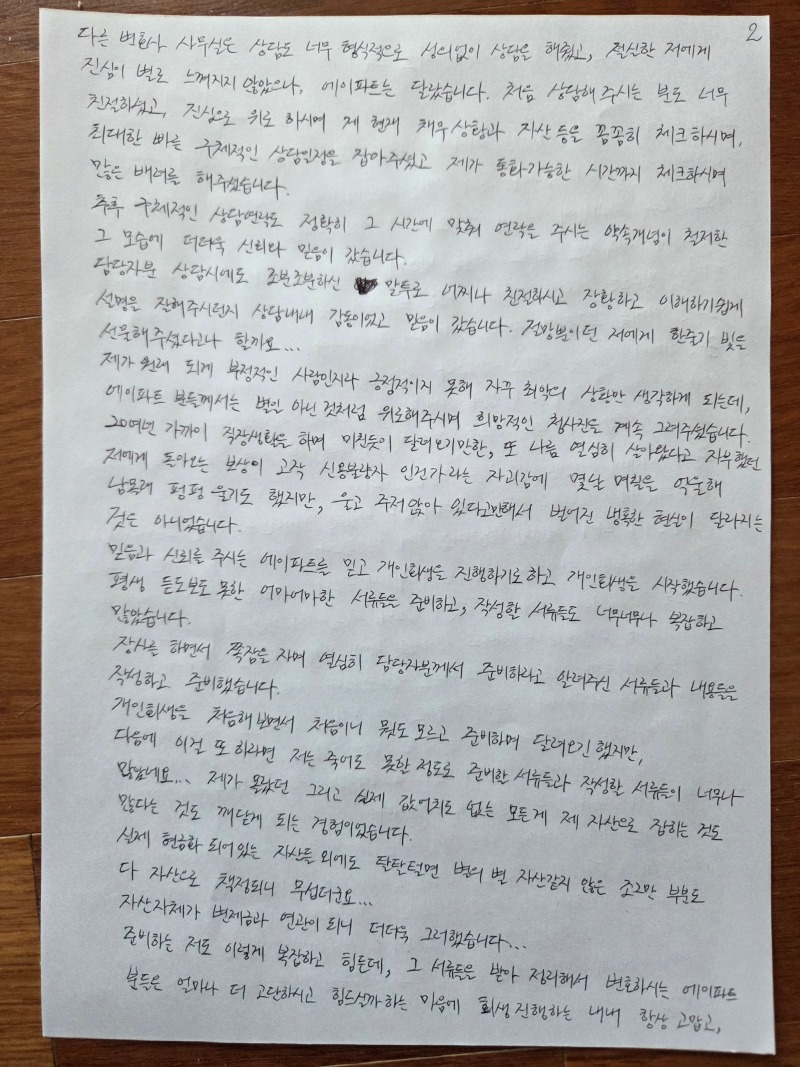 2
다른 변호사 사무실은 상담도 너무 형식적으로 성의없이 상담을 해줬고, 절실한 저에게
진심이 별로 느껴지지 않았으나, 에이파트는 달랐습니다. 처음 상담해 주시는 분도 너무
친절하셨고, 진심으로 위로 하시며 제 현재 채무상황과 자산 등을 꼼꼼히 체크하시며,
최대한 빠른 구체적인 상담일정을 잡아주셨고 제가 통화가능한 시간까지 체크하시며
많은 배려를 해주셨습니다.
추후 구체적인 상담연락도 정확히 그 시간에 맞춰 연락을 주시는 약속개념이 철저한
그 모습에 더더욱 신뢰와 믿음이 갔습니다.
담당자분 상담시에도 조분조분하신 말투로 어찌나 친절하시고 장황하고 이해하기쉽게
설명을 잘해주시던지 상담내내 감동이었고 믿음이 갔습니다. 절망뿐이던 저에게 한줄기 빛을
선물해주셨다고나 할까요...
제가 원래 되게 부정적인 사람인지라 긍정적이지 못해 자꾸 최악의 상황만 생각하게 되는데,
에이파트 분들께서는 별일 아닌것처럼 위로해주시며 희망적인 청사진을 계속 그려주셨습니다.
20여년 가까이 직장생활을 하며 미친듯이 달려오기만한, 또 나름 열심히 살아왔다고 자부했던
저에게 돌아오는 보상이 고작 신용불량자 인건가라는 자괴감에 몇날 며칠을 억울해
남몰래 펑펑 울기도 했지만, 울고 주저앉아 있다고만해서 벌어진 냉혹한 현실이 달라지는
것은 아니었습니다.
믿음과 신뢰를 주시는 에이파트를 믿고 개인회생을 진행하기로하고 개인회생을 시작했습니다.
평생 듣도보도 못한 어마어마한 서류들을 준비하고, 작성할 서류들도 너무너무나 복잡하고
많았습니다.
장사를 하면서 쪽잠을 자며 열심히 담당자분께서 준비하라고 알려주신 서류들과 내용들을
작성하고 준비했습니다.
개인회생을 처음해보면서 처음이니 뭣도 모르고 준비하며 달려오긴 했지만,
다음에 이걸 또 하라면 저는 죽어도 못할정도로 준비할 서류들과 작성할 서류들이 너무나
많았네요... 제가 몰랐던 그리고 실제 값어치도 없는 모든게 제 자산으로 잡히는 것도
많다는 것도 깨닫게 되는 경험이었습니다.
실제 현금화 되어있는 자산들 외에도 탈탈털면 별의 별 자산같지 않은 조그만 부분도
다 자산으로 책정되니 무섭더군요...
자산자체가 변제금과 연관이 되니 더더욱 그러했습니다...
준비하는 저도 이렇게 복잡하고 힘든데, 그 서류들을 받아 정리해서 변호하시는 에이파트
분들은 얼마나 더 고단하시고 힘드실까하는 마음에 회생진행하는 내내 항상 고맙고,